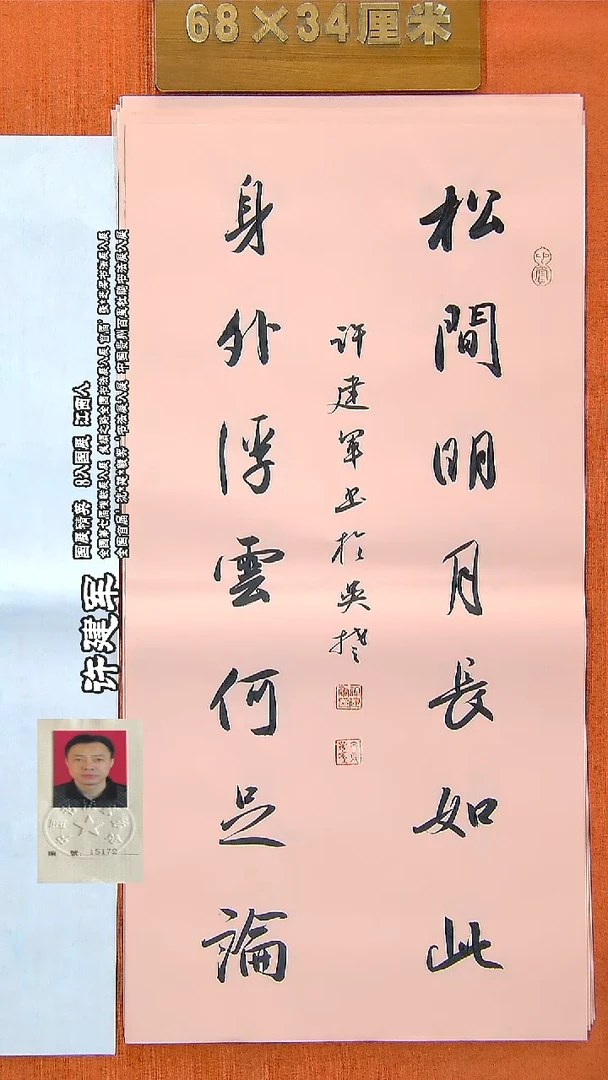 68×34厘米
松間明月長如此
身外浮雲何足論
許建軍书於吳楚
许建军
国展精英 8入国展 江西人
编 號：15172